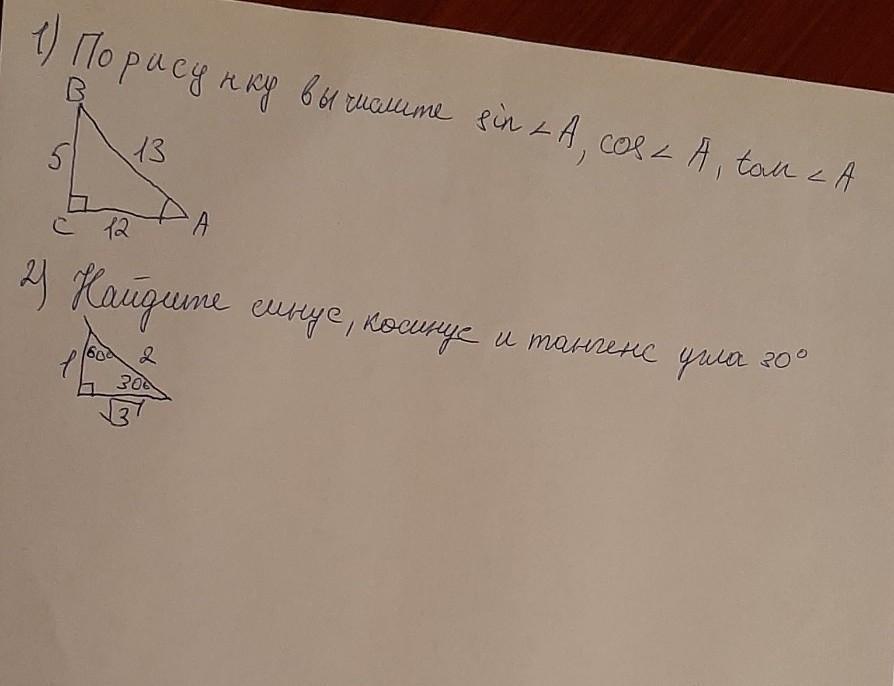 1) По рисунку вычислите sin∠A, cos∠A, tan∠A
B
5
13
C
12
A
2) Найдите синус, косинус и тангенс угла 30°
1
60°
2
30°
√3